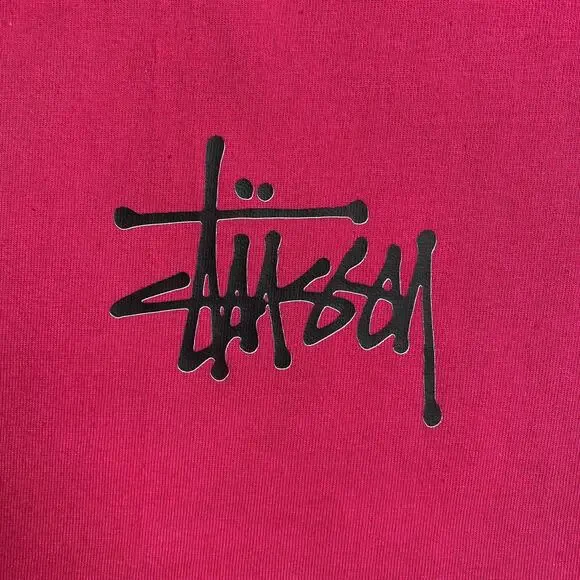 Stüssy